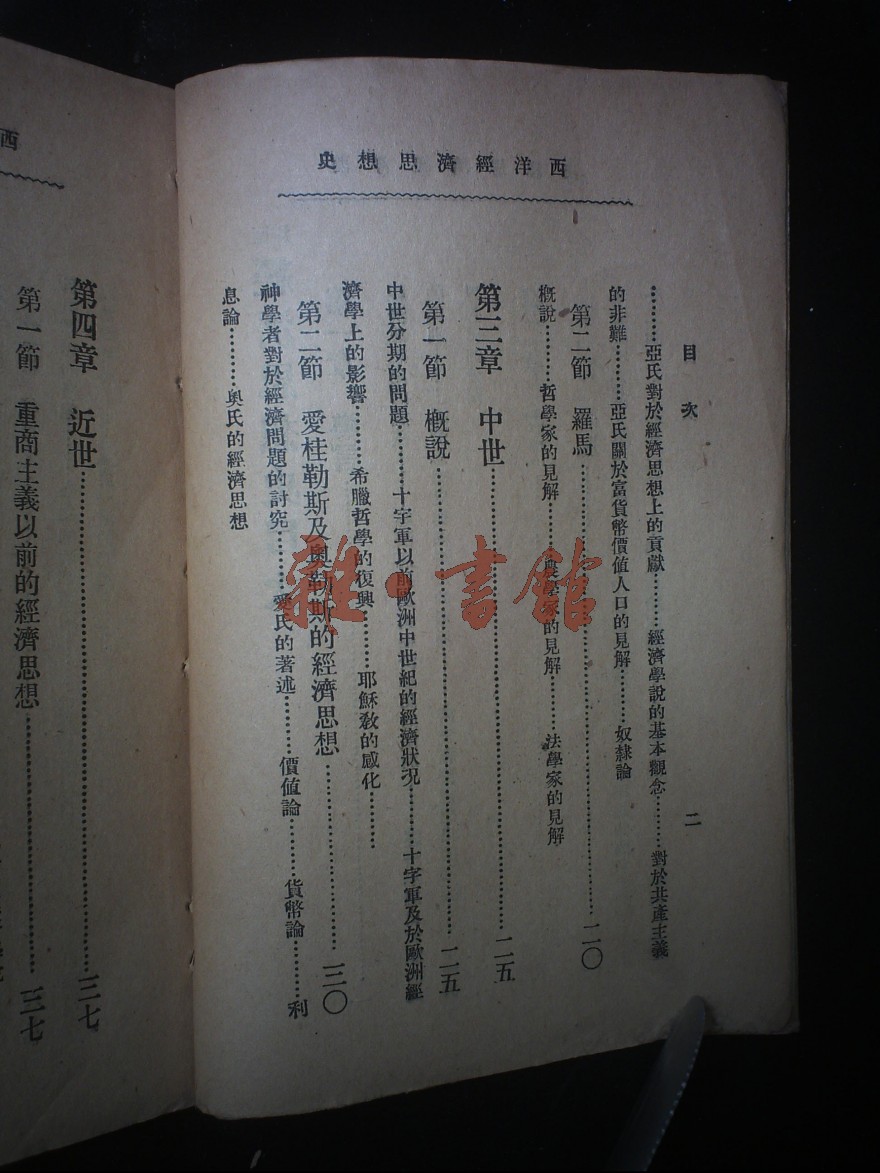 西洋經濟思想史
目次
二
…………亞氏對於經濟思想上的貢獻…………經濟學說的基本觀念…………對於共產主義
的非難…………亞氏關於富貨幣價值人口的見解…………奴隸論
第二節 羅馬……………………二〇
概說…………哲學家的見解…………農學家的見解…………法學家的見解
第三章 中世……………………二五
第一節 概說……………………二五
中世分期的問題…………十字軍以前歐洲中世紀的經濟狀況…………十字軍及於歐洲經
濟學上的影響…………希臘哲學的復興…………耶穌教的感化…………
第二節 愛桂勒斯及奧勒斯的經濟思想……………………三〇
神學者對於經濟問題的討究…………愛氏的著述…………價值論…………貨幣論…………利
息論…………奧氏的經濟思想
西
第四章 近世……………………三七
第一節 重商主義以前的經濟思想……………………三七
雜·書館